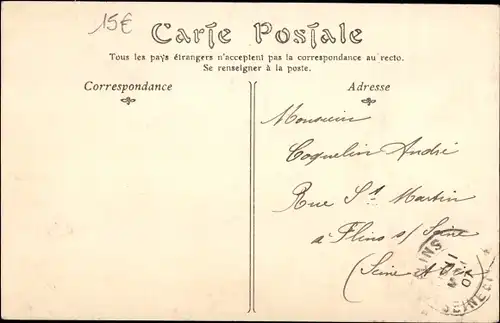 15€
Carte Postale
Tous les pays étrangers n'acceptent pas la correspondance au recto.
Se renseigner à la poste.
Correspondance
Adresse
Monsieur
Coquelin André
Rue St Martin
à Flins s/ Seine
(Seine et Oise
11
07